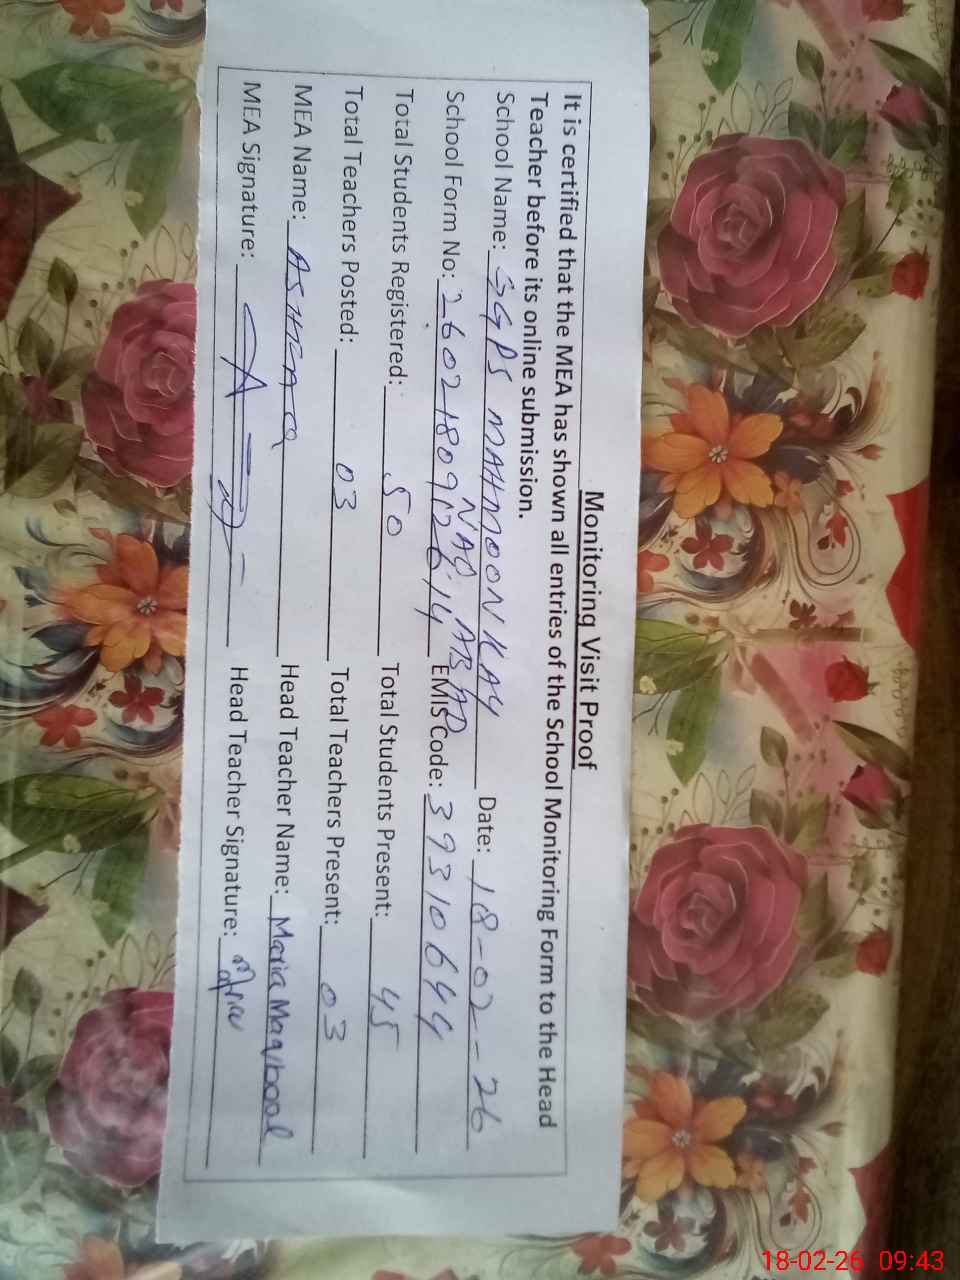 Monitoring Visit Proof
It is certified that the MEA has shown all entries of the School Monitoring Form to the Head
Teacher before its online submission.
School Name: GGPS MAHMOON KAY Date: 18-02-26
NAQ ABAD
School Form No: 2602180912614 EMIS Code: 39310644
Total Students Registered: 50 Total Students Present: 45
Total Teachers Posted: 03 Total Teachers Present: 03
MEA Name: Head Teacher Name: Maria Maqbool
MEA Signature: Head Teacher Signature: Maria
18-02-26 09:43